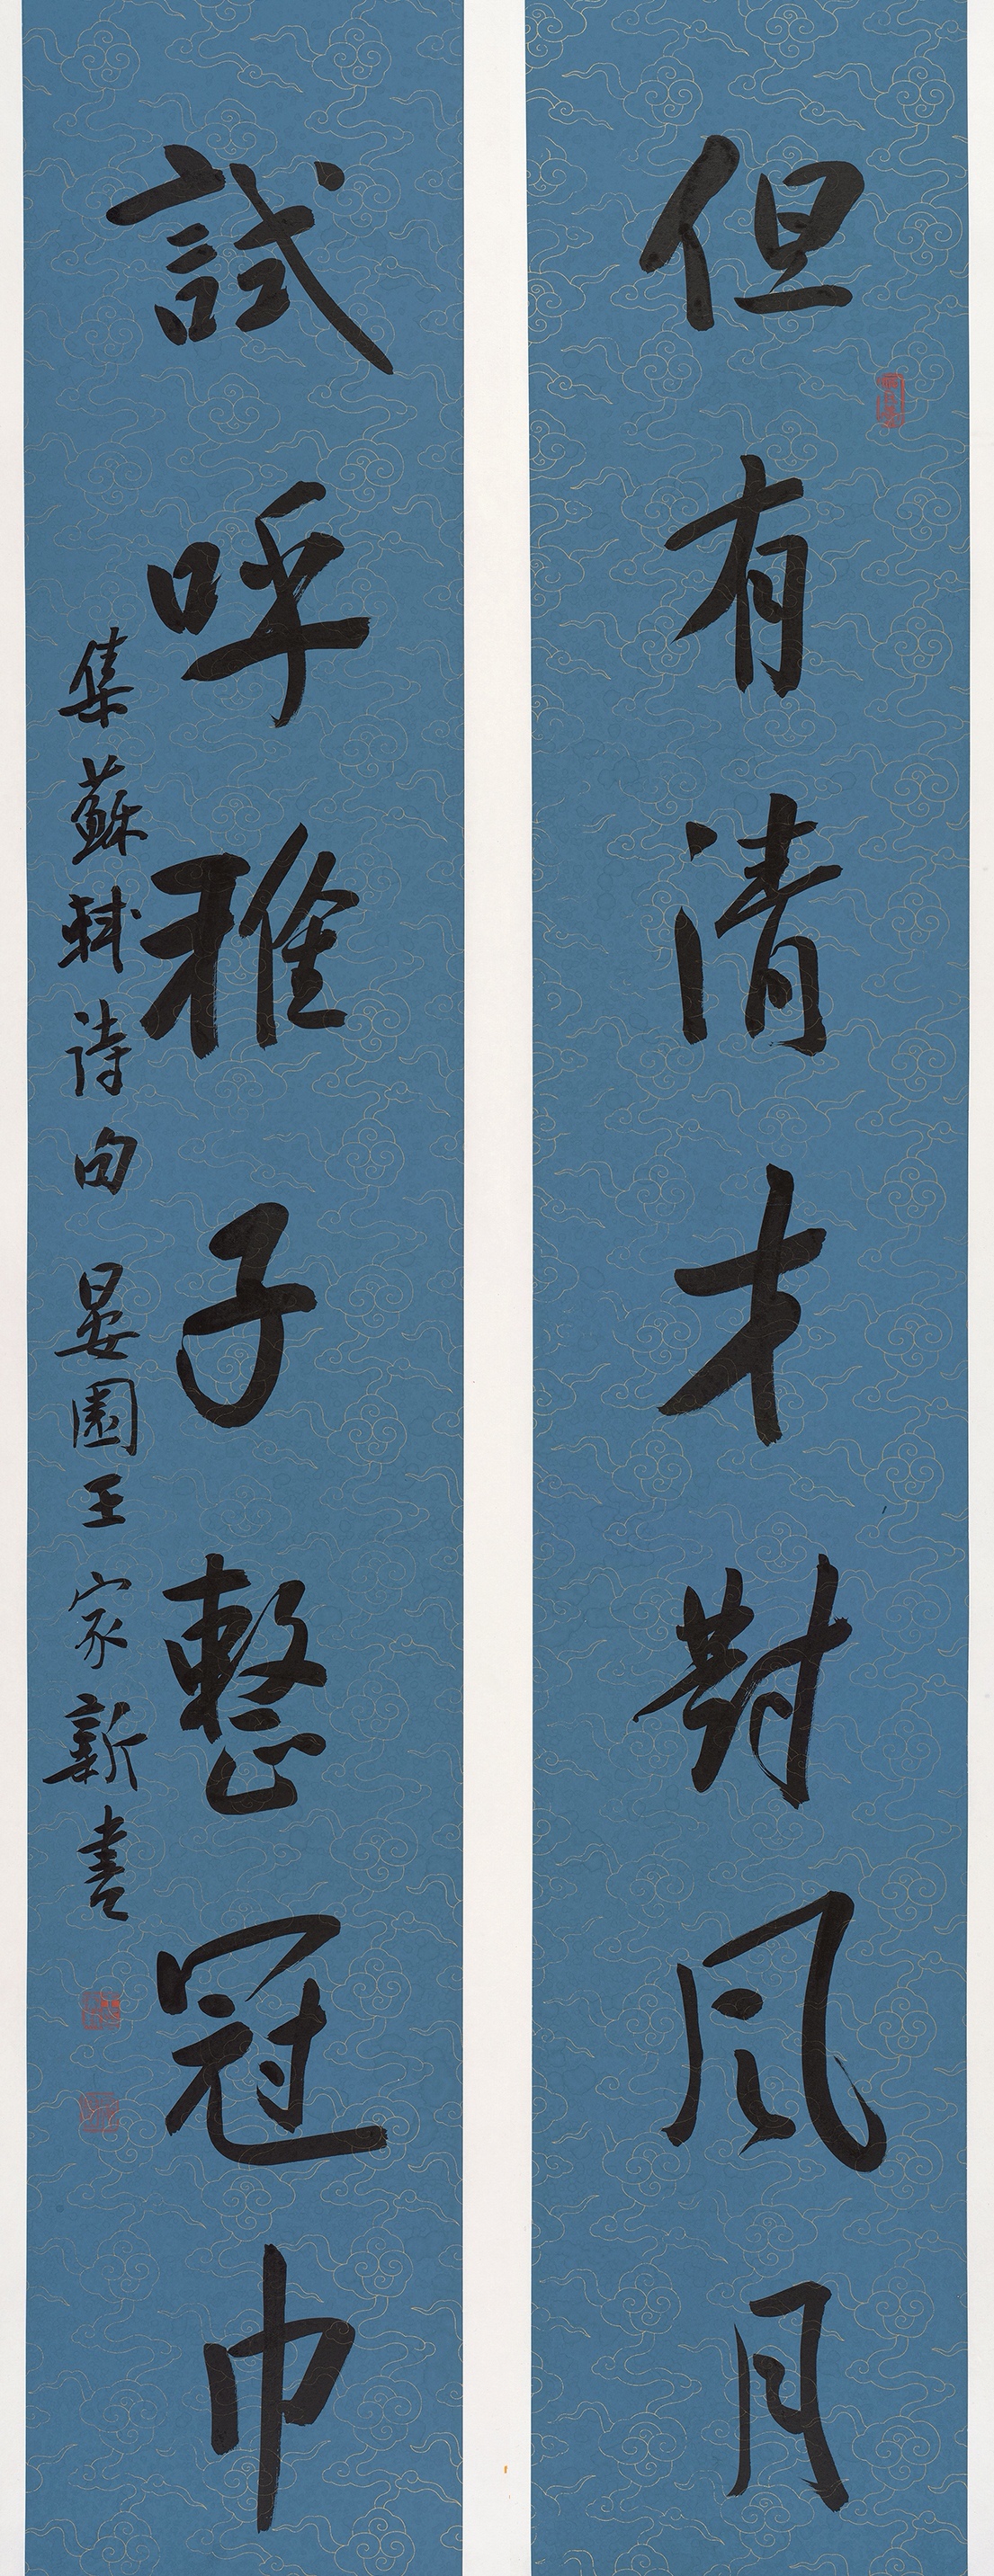 但有清才對風月
試呼稚子整冠巾
集蘇軾詩句晏園王家新書